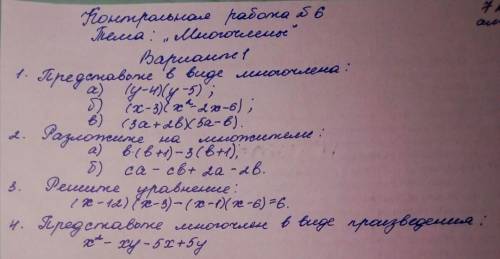 Контрольная работа №6
Тема: „Многочлены"
Вариант 1
1. Представьте в виде многочлена:
а) (y-4)(y-5);
б) (x-3)(x²-2x-6);
в) (3a+2b)(5a-b).
2. Разложите на множители:
а) b(b+1)-3(b+1);
б) ca-cb+2a-2b.
3. Решите уравнение:
(x-12)(x-3)-(x-1)(x-6)=6.
4. Представьте многочлен в виде произведения:
x²-xy-5x+5y